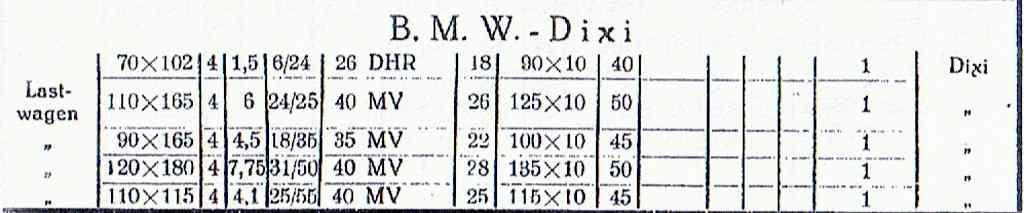 B. M. W. - Dixi
70×102 4 1,5 6/24 26 DHR 18 90×10 40 1 Dixi
Last-
wagen 110×165 4 6 24/25 40 MV 26 125×10 50 1 „
„ 90×165 4 4,5 18/35 35 MV 22 100×10 45 1 „
„ 120×180 4 7,75 31/50 40 MV 28 135×10 50 1 „
„ 110×115 4 4,1 25/55 40 MV 25 115×10 45 1 „